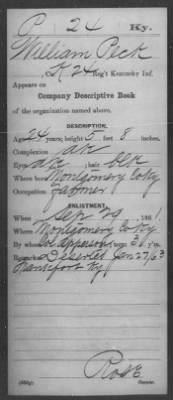 P 24 Ky.
William Peck
, Co. K, 24 Reg't Kentucky Inf.
Appears on
Company Descriptive Book
of the organization named above.
DESCRIPTION.
Age 24 years; height 5 feet 8 inches.
Complexion dk
Eyes dk; hair blk
Where born Montgomery Co Ky
Occupation Farmer
ENLISTMENT.
When Sep 29, 1861.
Where Montgomery Co Ky
By whom Col Apperson; term 3 y'rs.
Remarks Deserted Jan 27/63
Frankfort Ky
Copyist.